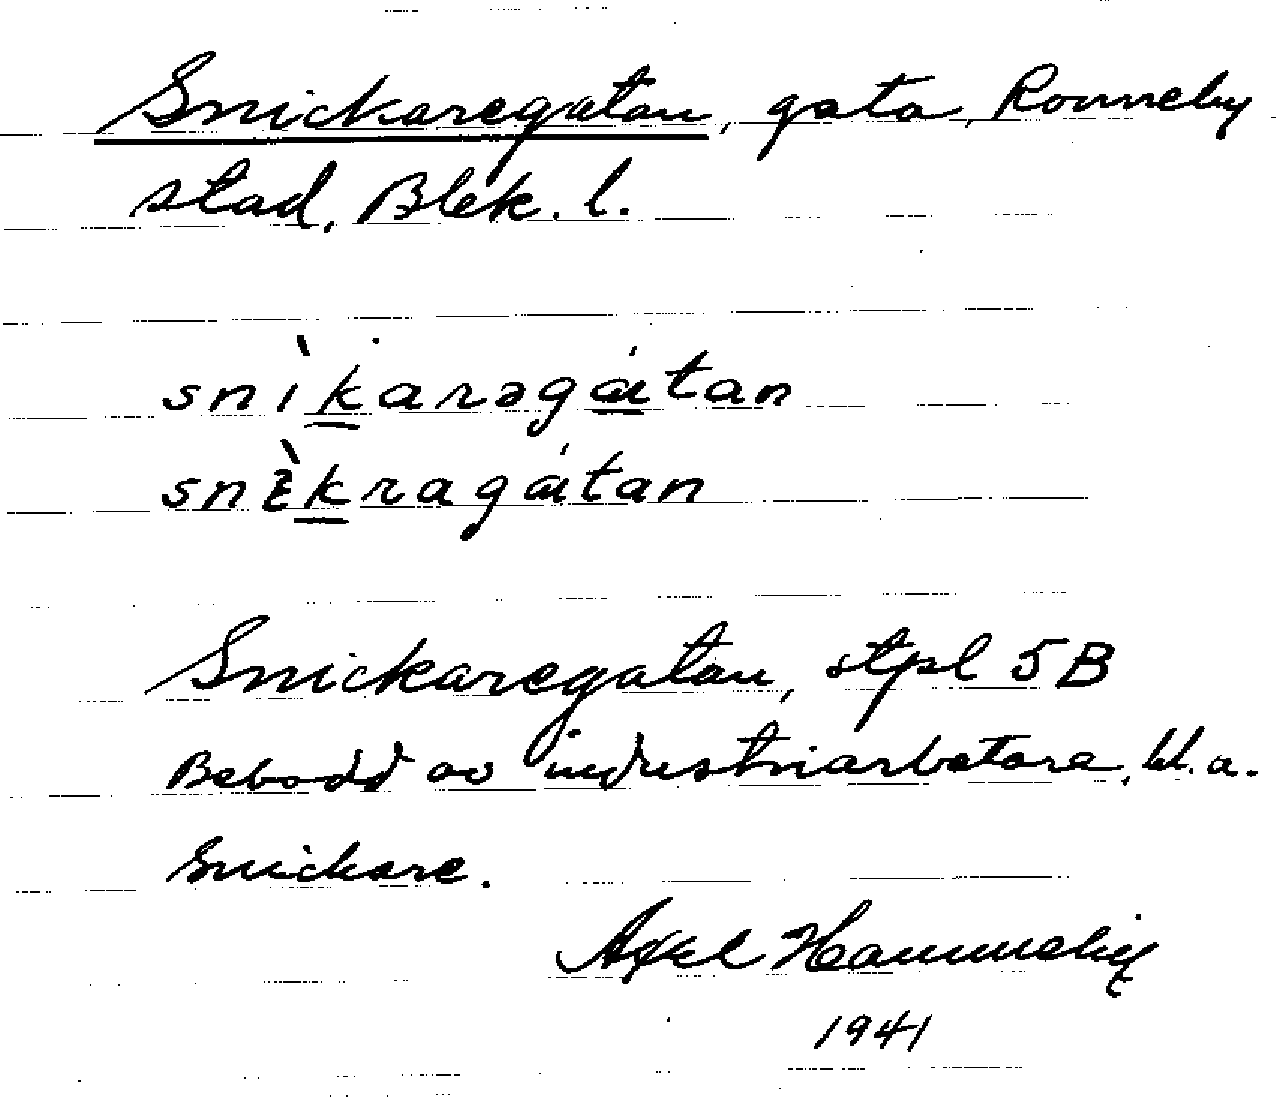 Snickaregatan, gata, Ronneby
stad, Blek. l.
snìkarəgátan
snìkragátan
Snickaregatan, stpl 5B
Bebodd av industriarbetare, bl.a.
Snickare.
Axel
1941